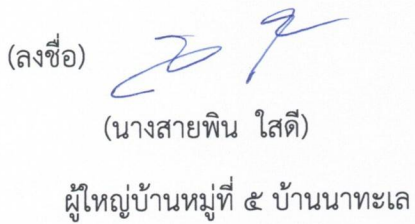 (ลงชื่อ)
(นางสายพิน ใสดี)
ผู้ใหญ่บ้านหมู่ที่ ๕ บ้านนาทะเล